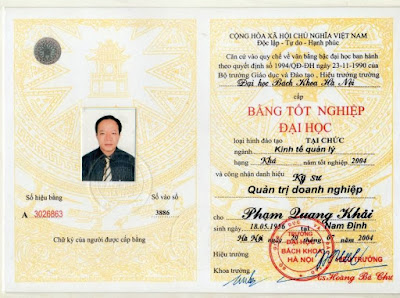 Số hiệu bằng
Số vào sổ
A 3026863
3886
Chữ ký của người được cấp bằng
CỘNG HÒA XÃ HỘI CHỦ NGHĨA VIỆT NAM
Độc lập - Tự do - Hạnh phúc
Căn cứ vào quy chế về văn bằng bậc đại học ban hành
theo quyết định số 1994/QĐ-ĐH ngày 23-11-1990 của
Bộ trưởng Giáo dục và Đào tạo, Hiệu trưởng trường
Đại học Bách Khoa Hà Nội
cấp
BẰNG TỐT NGHIỆP
ĐẠI HỌC
loại hình đào tạo TẠI CHỨC
ngành Kinh tế quản lý
hạng Khá năm tốt nghiệp 2004
và công nhận danh hiệu Kỹ sư
Quản trị doanh nghiệp
cho Phạm Quang Khải
sinh ngày 18.05.1956 tại Nam Định
Hà Nội ngày tháng năm 2004
Hiệu trưởng
HIỆU TRƯỞNG
TRƯỜNG
BÁCH KHOA
HÀ NỘI
Khoa trưởng
Hoàng Bá Chư